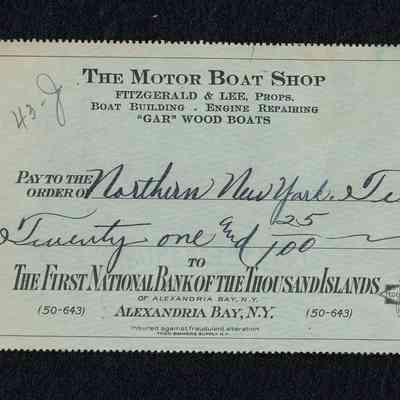 THE MOTOR BOAT SHOP
FITZGERALD & LEE, PROPS.
BOAT BUILDING . ENGINE REPAIRING
"GAR" WOOD BOATS
43-J
PAY TO THE
ORDER OF Northern New York. Te
Twenty one and 25/100
TO
THE FIRST NATIONAL BANK OF THE THOUSAND ISLANDS
OF ALEXANDRIA BAY, N.Y.
(50-643) ALEXANDRIA BAY, N.Y. (50-643)
Insured against fraudulent alteration